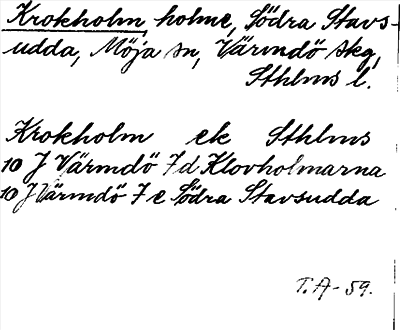 Krokholm, holme, Södra Stavs-
udda, Möja sn, Värmdö skg,
Sthlms l.
Krokholm ek Sthlms
10 J Värmdö 7 d Klovholmarna
10 J Värmdö 7 e Södra Stavsudda
T.A-59.